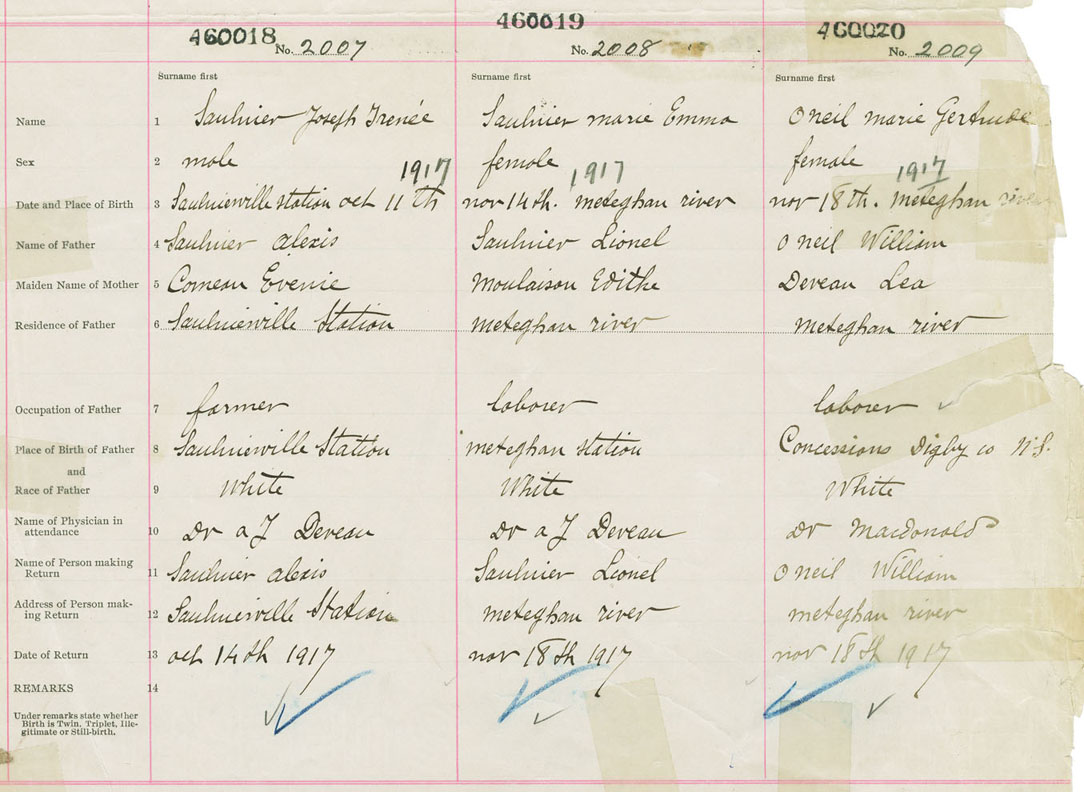 460018 460019 460020
No. 2007 No. 2008 No. 2009
Surname first Surname first Surname first
Name 1 Saulnier Joseph Irenée Saulnier marie Emma Oneil marie Gertrude
Sex 2 male female female
1917 1917 1917
Date and Place of Birth 3 Saulnierville station oct 11th nov 14th. meteghan river nov 18th. meteghan river
Name of Father 4 Saulnier alexis Saulnier Lionel Oneil William
Maiden Name of Mother 5 Comeau Evenie Moulaison Edithe Deveau Lea
Residence of Father 6 Saulnierville Station meteghan river meteghan river
Occupation of Father 7 farmer laborer laborer
Place of Birth of Father 8 Saulnierville Station meteghan station Concessions Digby co N.S.
and
Race of Father 9 White White White
Name of Physician in
attendance 10 Dr a J Deveau Dr a J Deveau Dr Macdonald
Name of Person making
Return 11 Saulnier alexis Saulnier Lionel Oneil William
Address of Person mak-
ing Return 12 Saulnierville Station meteghan river meteghan river
Date of Return 13 oct 14th 1917 nov 18th 1917 nov 18th 1917
REMARKS 14
Under remarks state whether
Birth is Twin, Triplet, Ille-
gitimate or Still-birth.